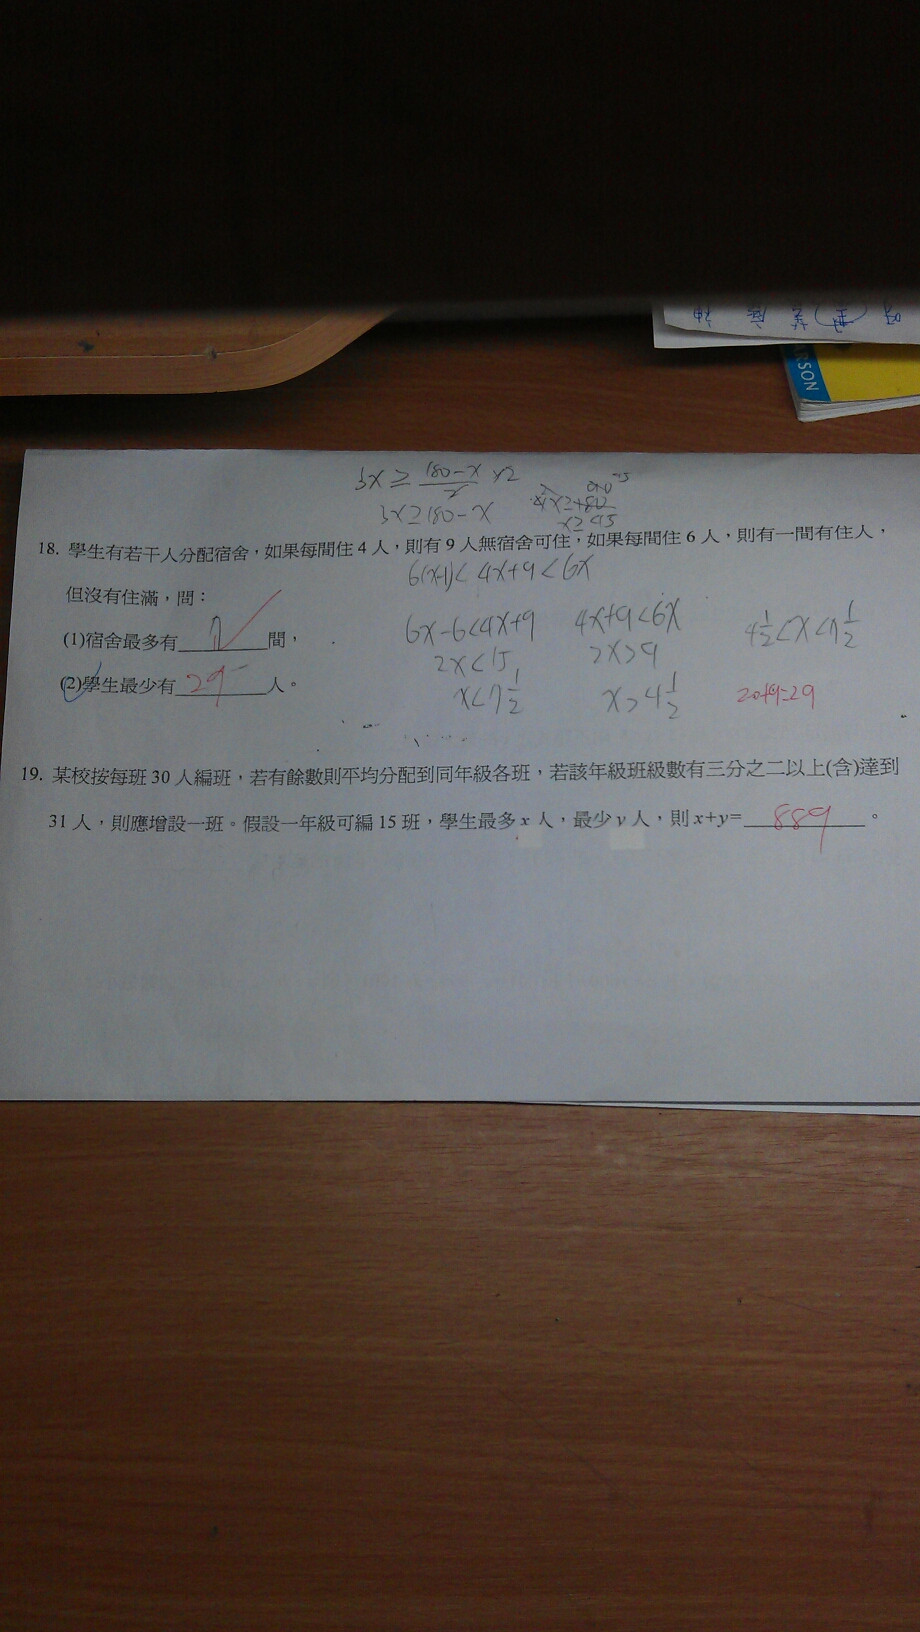 RSON
3x ≥ (180-x)/2 ×2
3x ≥ 180-x
x ≥ 45
18. 學生有若干人分配宿舍，如果每間住 4 人，則有 9 人無宿舍可住，如果每間住 6 人，則有一間有住人，
但沒有住滿，問：
6(x-1)< 4x+9 < 6x
(1)宿舍最多有 7 間，
6x-6<4x+9 4x+9<6x 4 1/2 <x<7 1/2
2x<15 2x>9
(2)學生最少有 29 人。
x<7 1/2 x>4 1/2 20+9=29
19. 某校按每班 30 人編班，若有餘數則平均分配到同年級各班，若該年級班級數有三分之二以上(含)達到
31 人，則應增設一班。假設一年級可編 15 班，學生最多 x 人，最少 y 人，則 x+y= 889 。